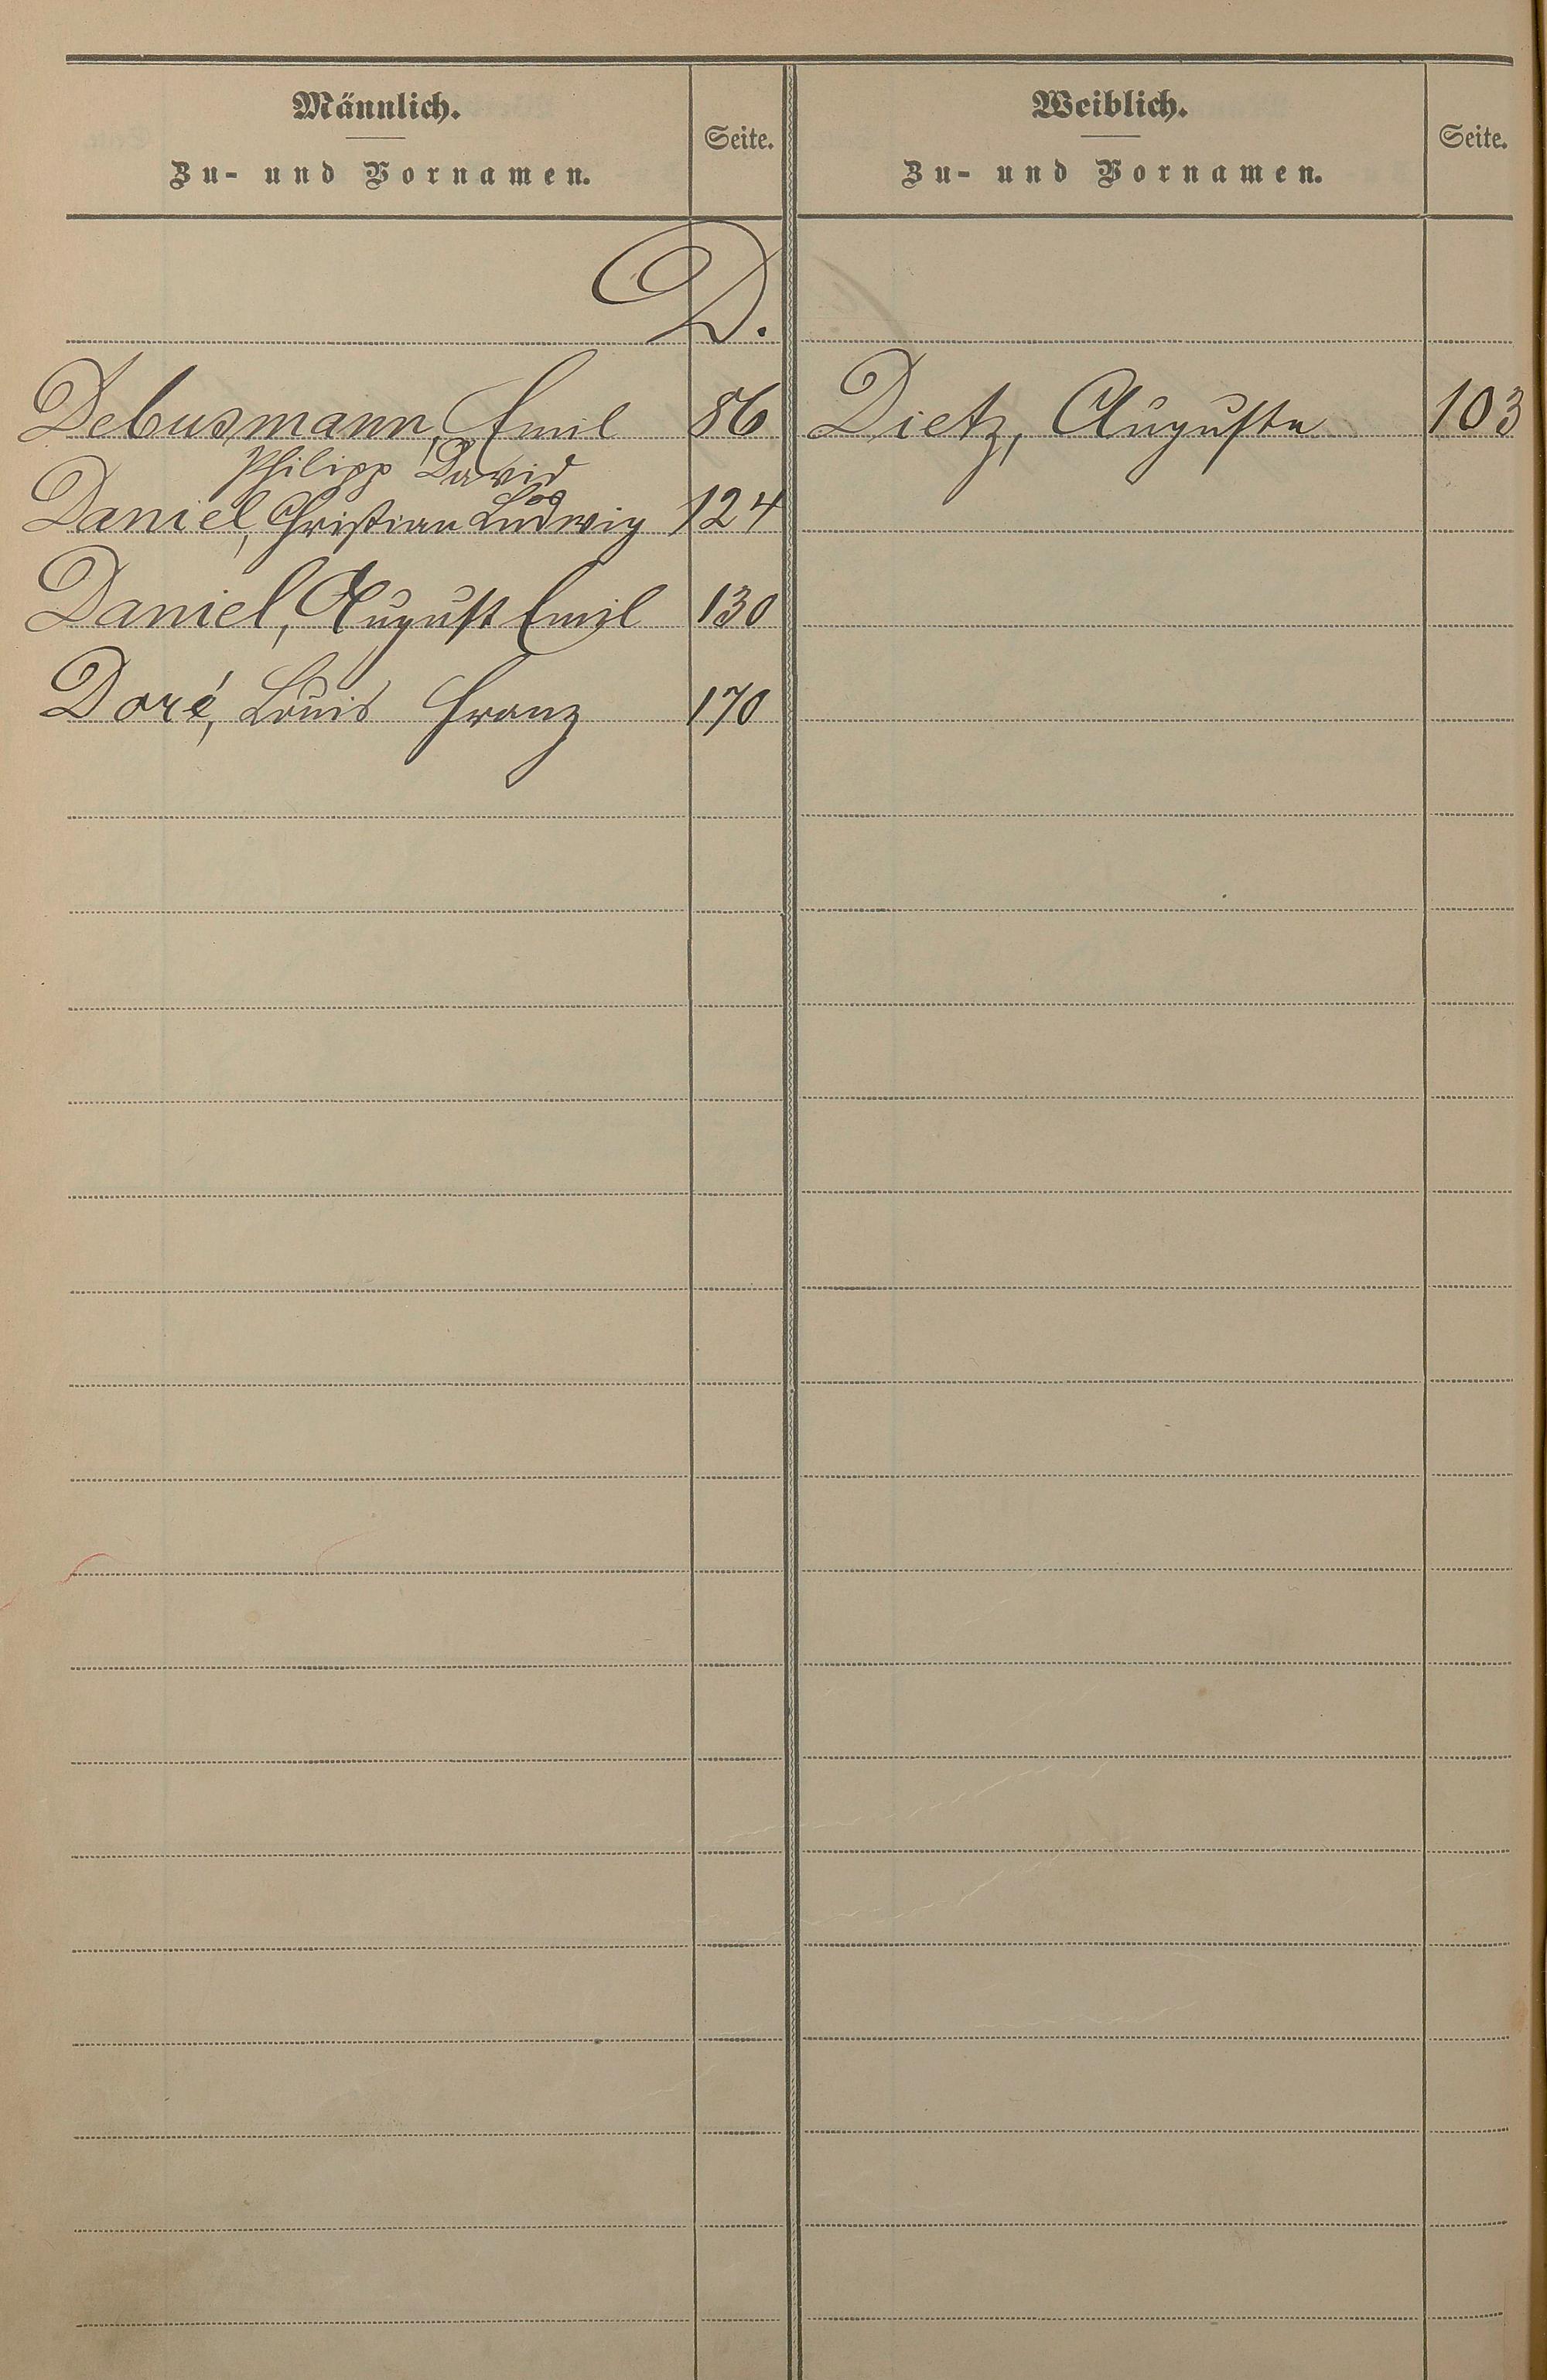 Männlich.
Zu- und Vornamen.
Seite.
Weiblich.
Zu- und Vornamen.
Seite.
D.
Debusmann, Emil 86
Philipp David
Daniel, Christian Ludwig 124
Daniel, August Emil 130
Doré, Louis Franz 170
Dietz, Augusta 103